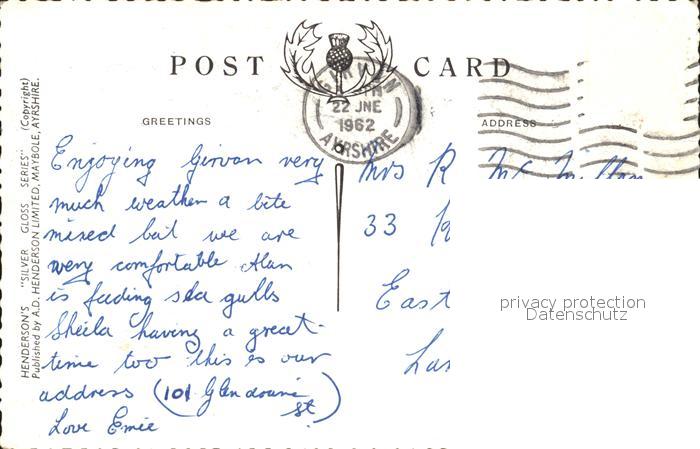 POST CARD
GIRVAN
22 JNE
1962
AYRSHIRE
GREETINGS
ADDRESS
HENDERSON'S "SILVER GLOSS SERIES" (Copyright)
Published by A.D. HENDERSON LIMITED, MAYBOLE, AYRSHIRE.
Enjoying Girvan very
much weather a bite
mixed but we are
very comfortable Alan
is feding sea gulls
Sheila having a great
time too this is our
address (101 Glendoune
st)
Love Emie
Mrs R Mc Millan
33
East
Lan
privacy protection
Datenschutz